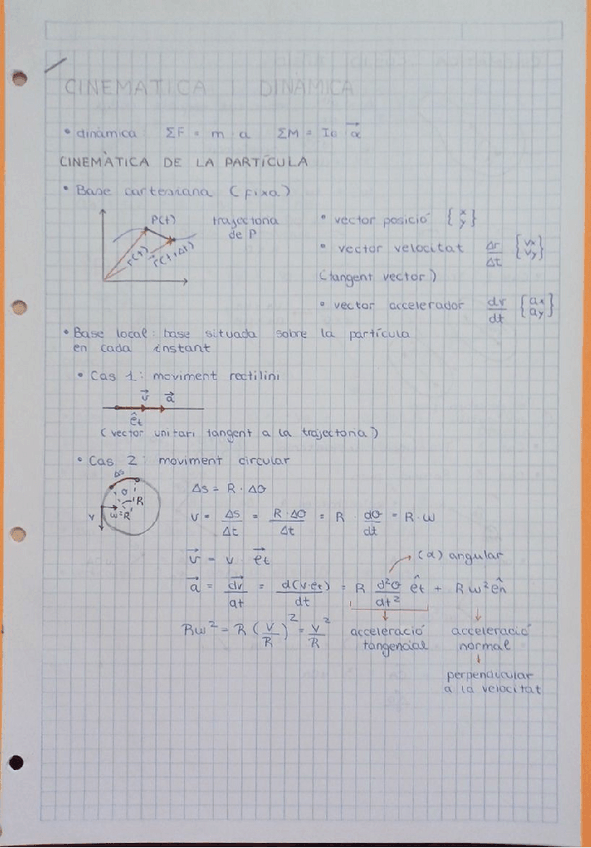 CINEMATICA I DINÀMICA
• dinàmica ΣF = m a ΣM = Io α⃗
CINEMÀTICA DE LA PARTÍCULA
• Base cartesiana (fixa)
P(t) trajectoria
de P
r(t) r(t+Δt)
• vector posició {x y}
• vector velocitat Δr/Δt {vx vy}
(tangent vector)
• vector accelerador dv/dt {ax ay}
• Base local: base situada sobre la partícula
en cada instant
• Cas 1: moviment rectilini
v⃗ a⃗
êt
(vector unitari tangent a la trajectoria)
• Cas 2: moviment circular
Δs
θ R
v ω R
Δs = R · Δθ
v = Δs/Δt = R · Δθ/Δt = R dθ/dt = R · ω
v⃗ = v · e⃗t
(α) angular
a⃗ = dv⃗/dt = d(v·et)/dt = R d²θ/dt² êt + Rω² ên
Rω² = R (v/R)² = v²/R
acceleració
tangencial
acceleració
normal
perpendicular
a la velocitat